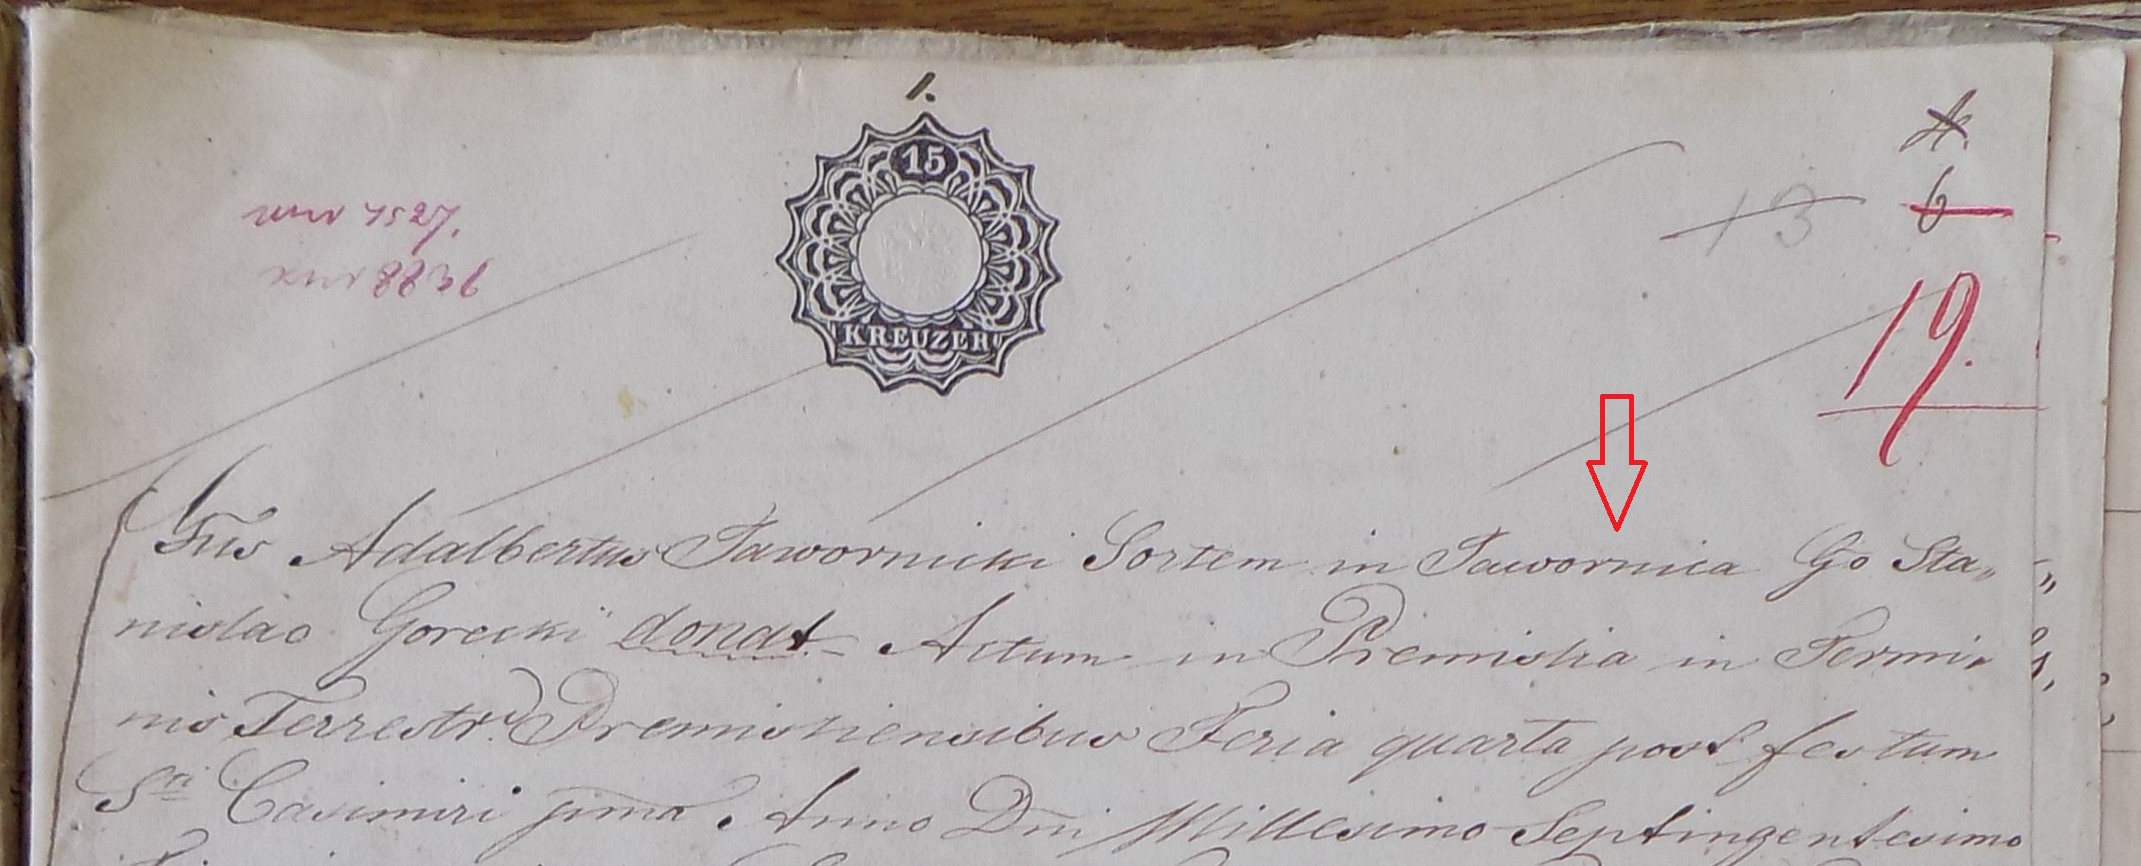 1.
15
KREUZER
A.
6
13
19.
Gus Adalbertus Jawornicki Sortem in Jawornica Go Sta„
nislao Gorecki donat Actum in Premislia in Termi„
nis Terrestr. Premisliensibus Feria quarta post festum
Sti Casimiri Anno Dni Millesimo Septingentesimo